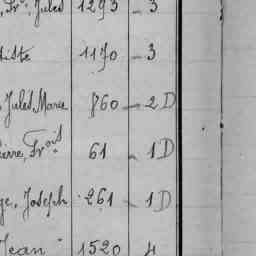 , Fr. Jules 1293 - 3
tiste 1170 - 3
Jules, Marie 860 - 2 D
ierre, Frois 61 - 1 D
ge, Joseph 261 - 1 D
Jean 1520 4